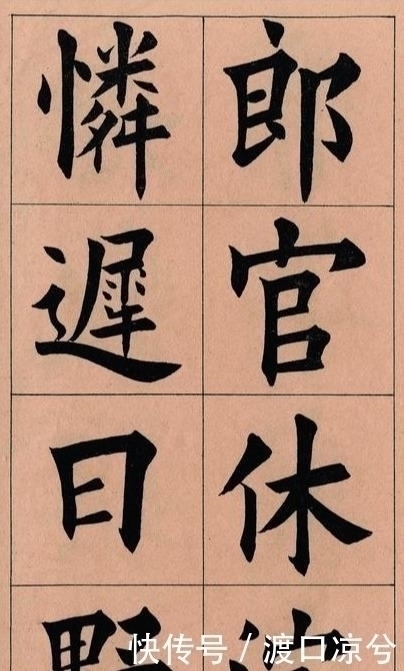 郎官休
憐遲日野
快传号 / 渡口凉兮